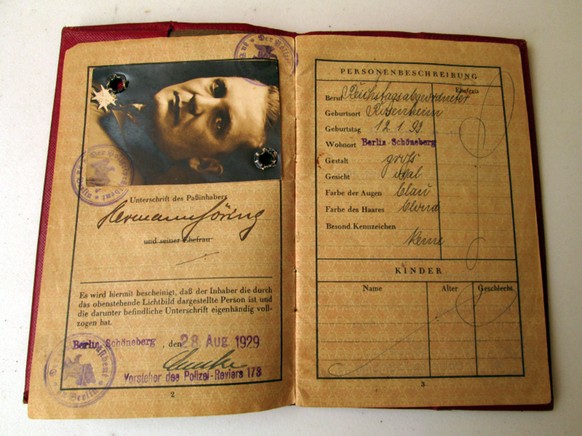 Unterschrift des Paßinhabers
Hermann Göring
und seiner Ehefrau
Es wird hiermit bescheinigt, daß der Inhaber die durch
das obenstehende Lichtbild dargestellte Person ist und
die darunter befindliche Unterschrift eigenhändig voll-
zogen hat.
Berlin Schöneberg, den 28 Aug 1929
Vorsteher des Polizei-Reviers 173
2
PERSONENBESCHREIBUNG
Ehefrau
Beruf Reichstagsabgeordneter
Geburtsort Rosenheim
Geburtstag 12.1.93
Wohnort Berlin-Schöneberg
Gestalt groß
Gesicht oval
Farbe der Augen blau
Farbe des Haares blond
Besond. Kennzeichen
keine
KINDER
Name Alter Geschlecht
3